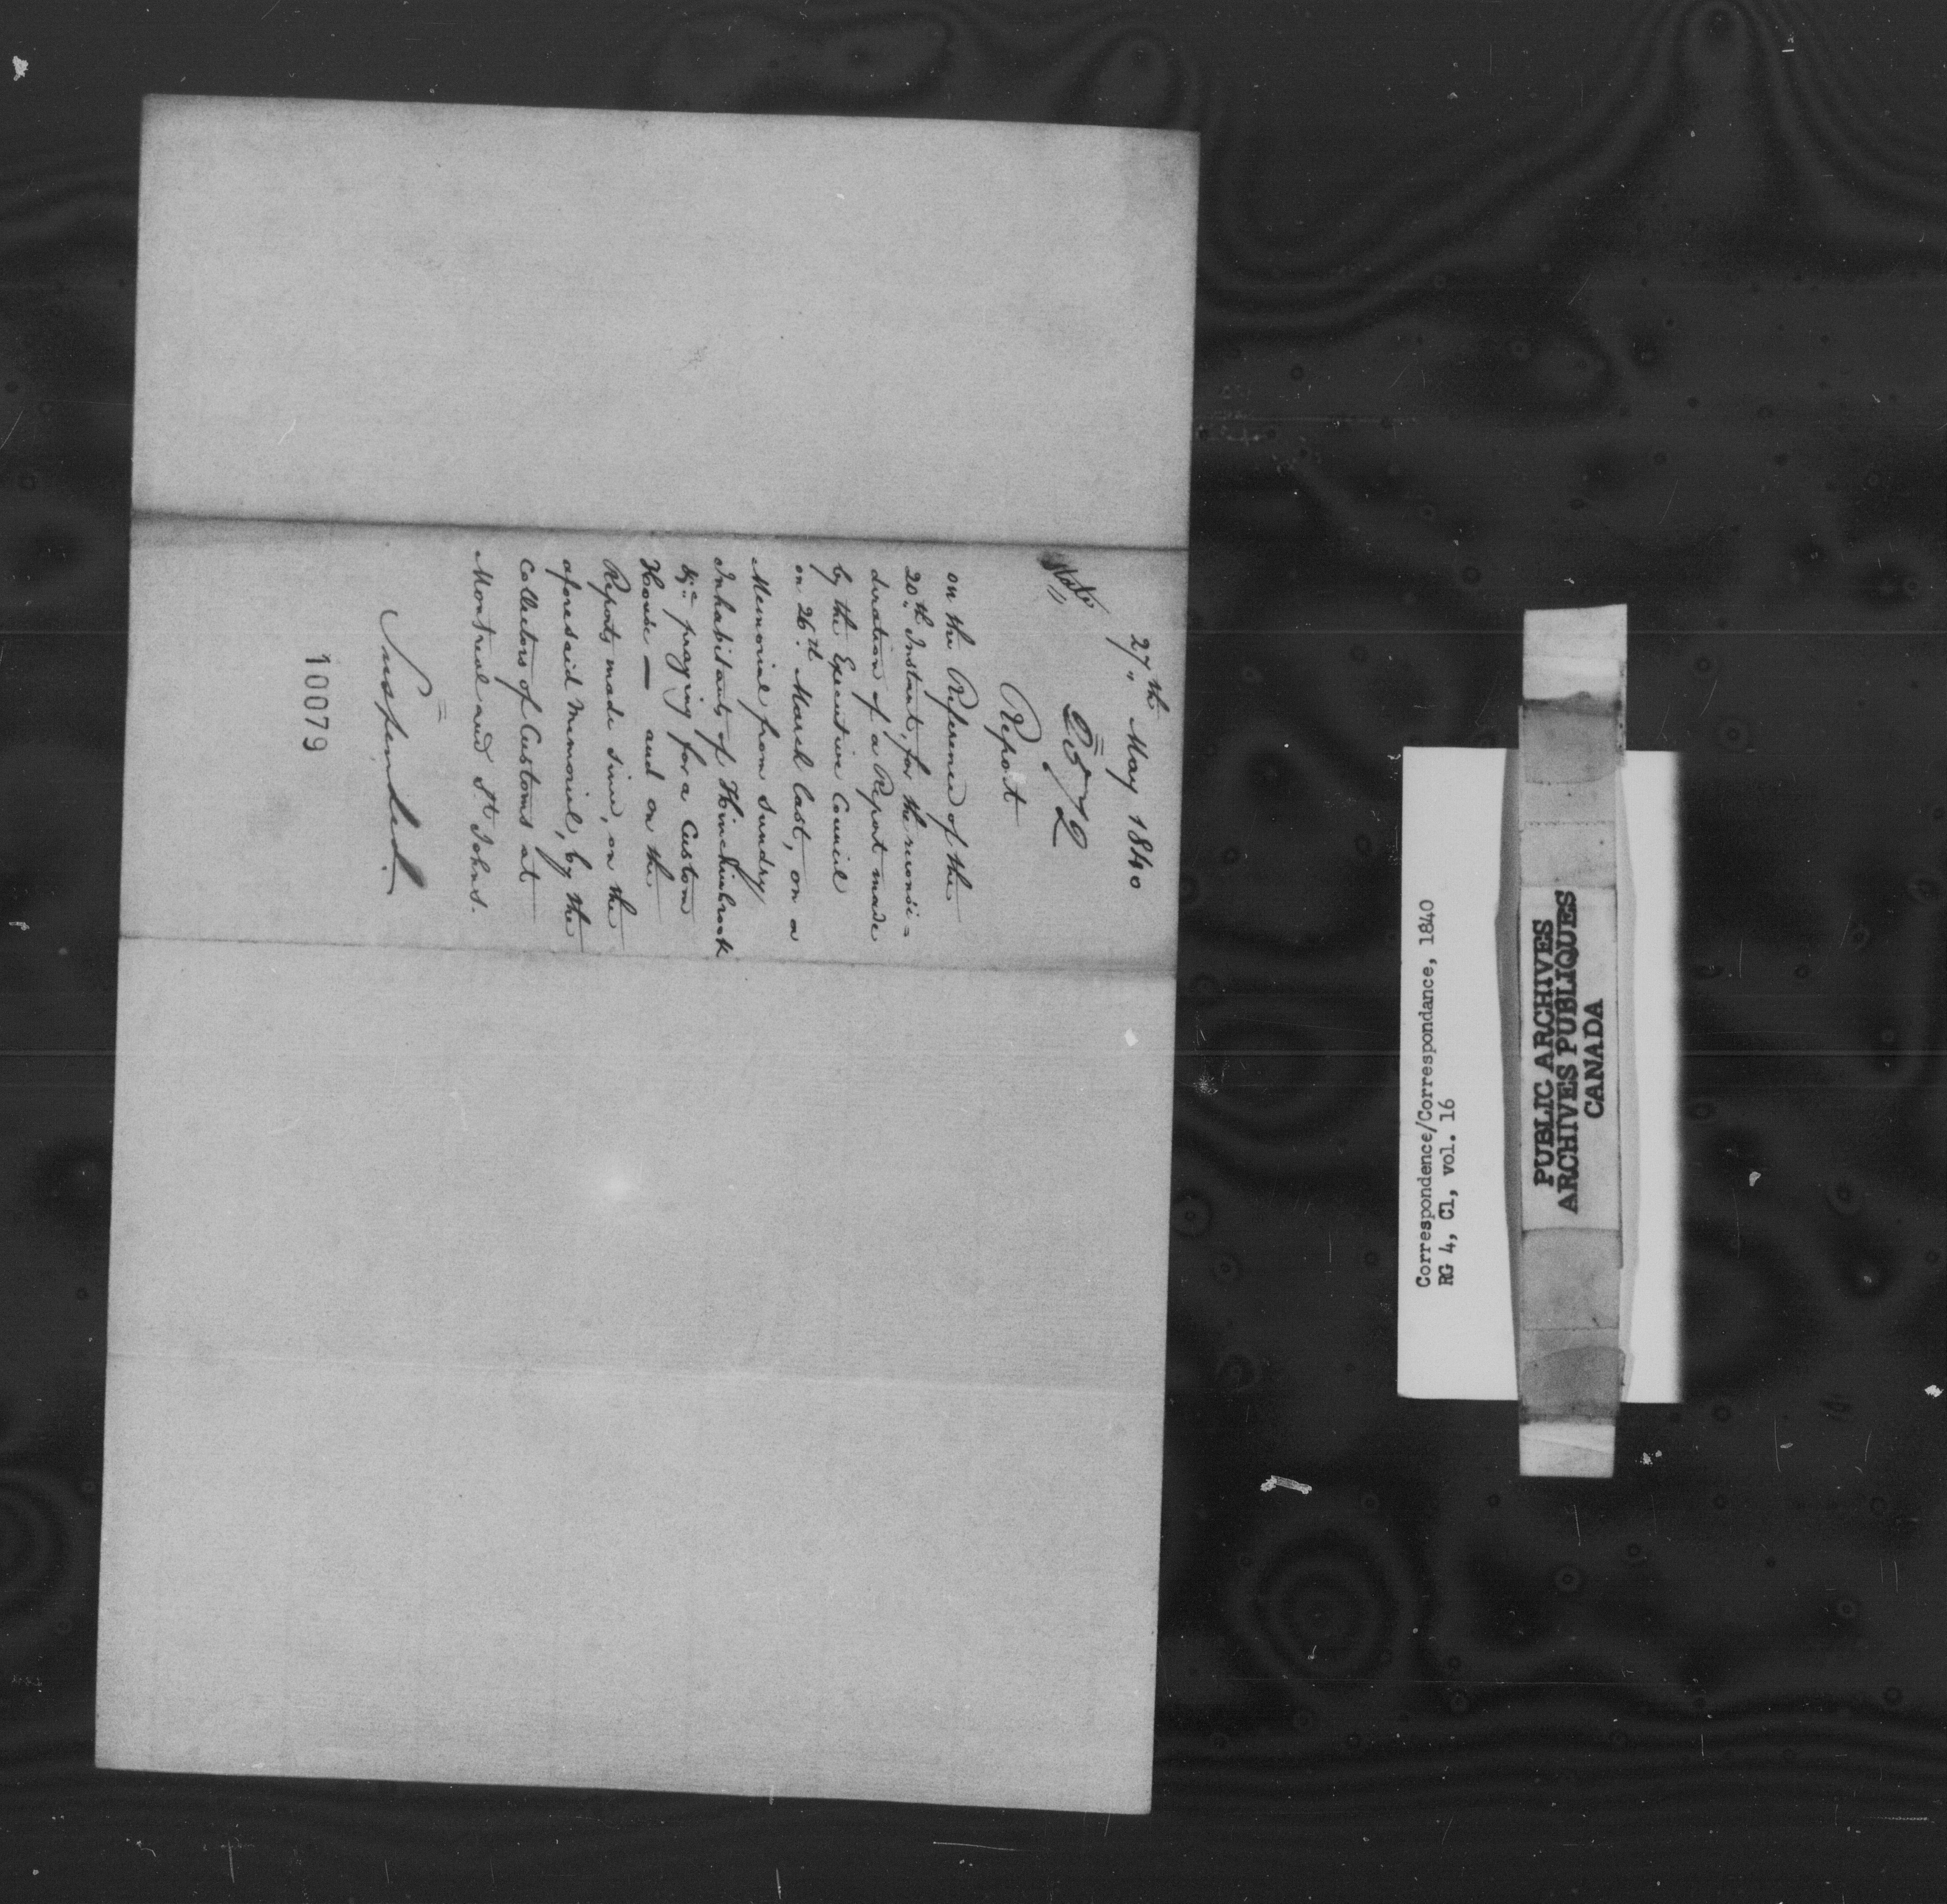 27th May 1840
State
2572
Report
on the Reference of the
20th Instant, for the reconsi=
deration of a Report made
by the Executive Council
on 26th March last, on a
Memorial from Sundry
Inhabitants of Hinchinbrook
&c praying for a Custom
House — and on the
Reports made since, on the
aforesaid Memorial, by the
Collectors of Customs at
Montreal and St Johns.
Suspended.
10079
Correspondence/Correspondance, 1840
RG 4, C1, vol. 16
PUBLIC ARCHIVES
ARCHIVES PUBLIQUES
CANADA